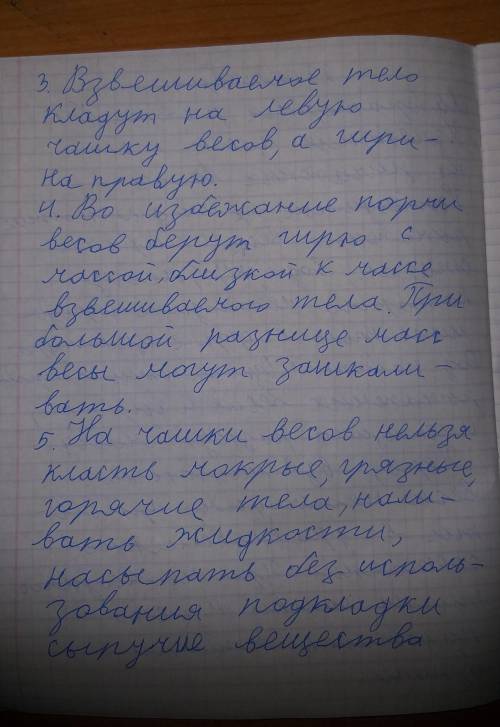 3. Взвешиваемое тело
кладут на левую
чашку весов, а гири -
на правую.
4. Во избежание порчи
весов берут гирю с
массой, близкой к массе
взвешиваемого тела. При
большой разнице масс
весы могут зашкали-
вать.
5. На чашки весов нельзя
класть мокрые, грязные,
горячие тела, нали-
вать жидкости,
насыпать без исполь-
зования подкладки
сыпучие вещества